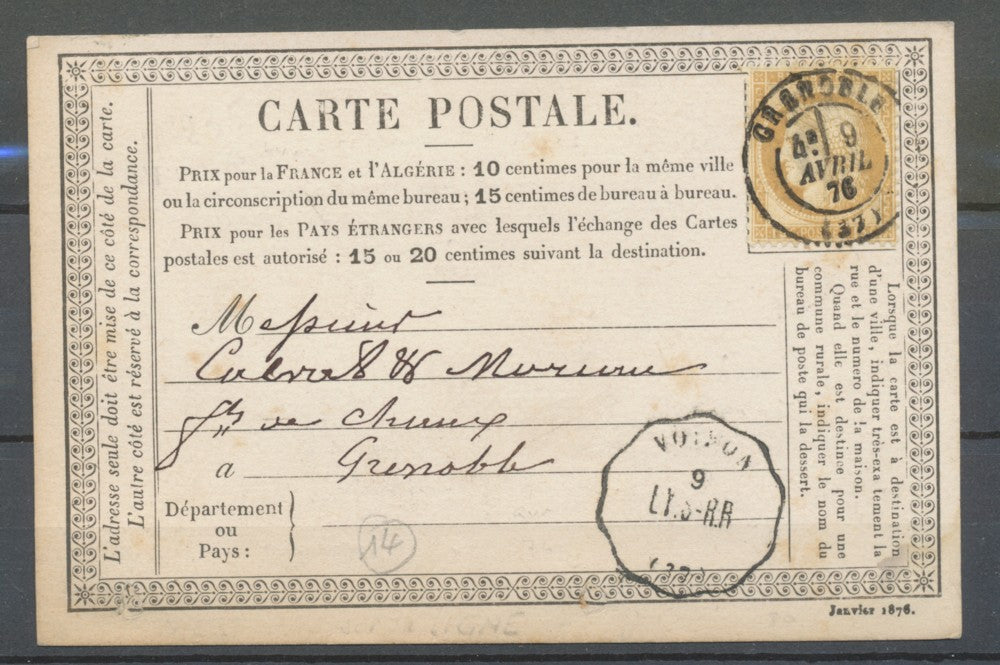 CARTE POSTALE.
PRIX pour la FRANCE et l'ALGÉRIE : 10 centimes pour la même ville
ou la circonscription du même bureau ; 15 centimes de bureau à bureau.
PRIX pour les PAYS ÉTRANGERS avec lesquels l'échange des Cartes
postales est autorisé : 15 ou 20 centimes suivant la destination.
GRENOBLE
9
AVRIL
76
(37)
L'adresse seule doit être mise de ce côté de la carte.
L'autre côté est réservé à la correspondance.
Messieurs
&
à
Grenoble
Département
ou
Pays :
14
VOIRON
9
LY.S-R.R
(37)
Lorsque la carte est à destination
d'une ville, indiquer très-exa tement la
rue et le numero de la maison.
Quand elle est destinee pour une
commune rurale, indiquer le nom du
bureau de poste qui la dessert.
Janvier 1876.